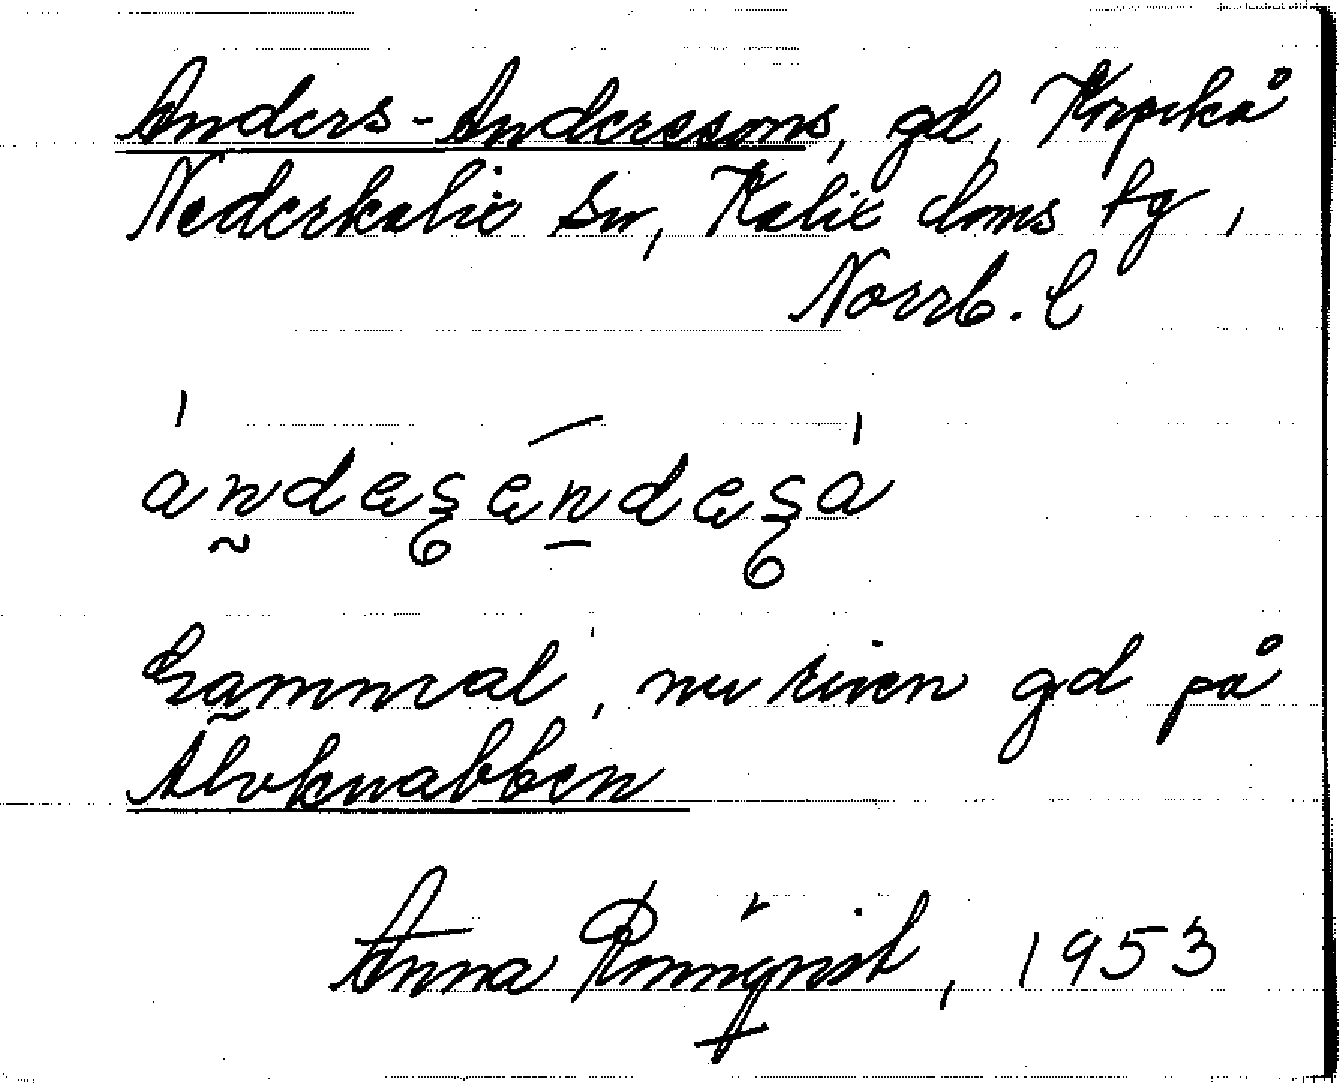 Anders-Anderssons, gd, Korpikå
Nederkalix sn, Kalix doms tg,
Norrb. l
andesendesa
Gammal, nu riven gd på
Älvknabben
Anna Rönnqvist, 1953